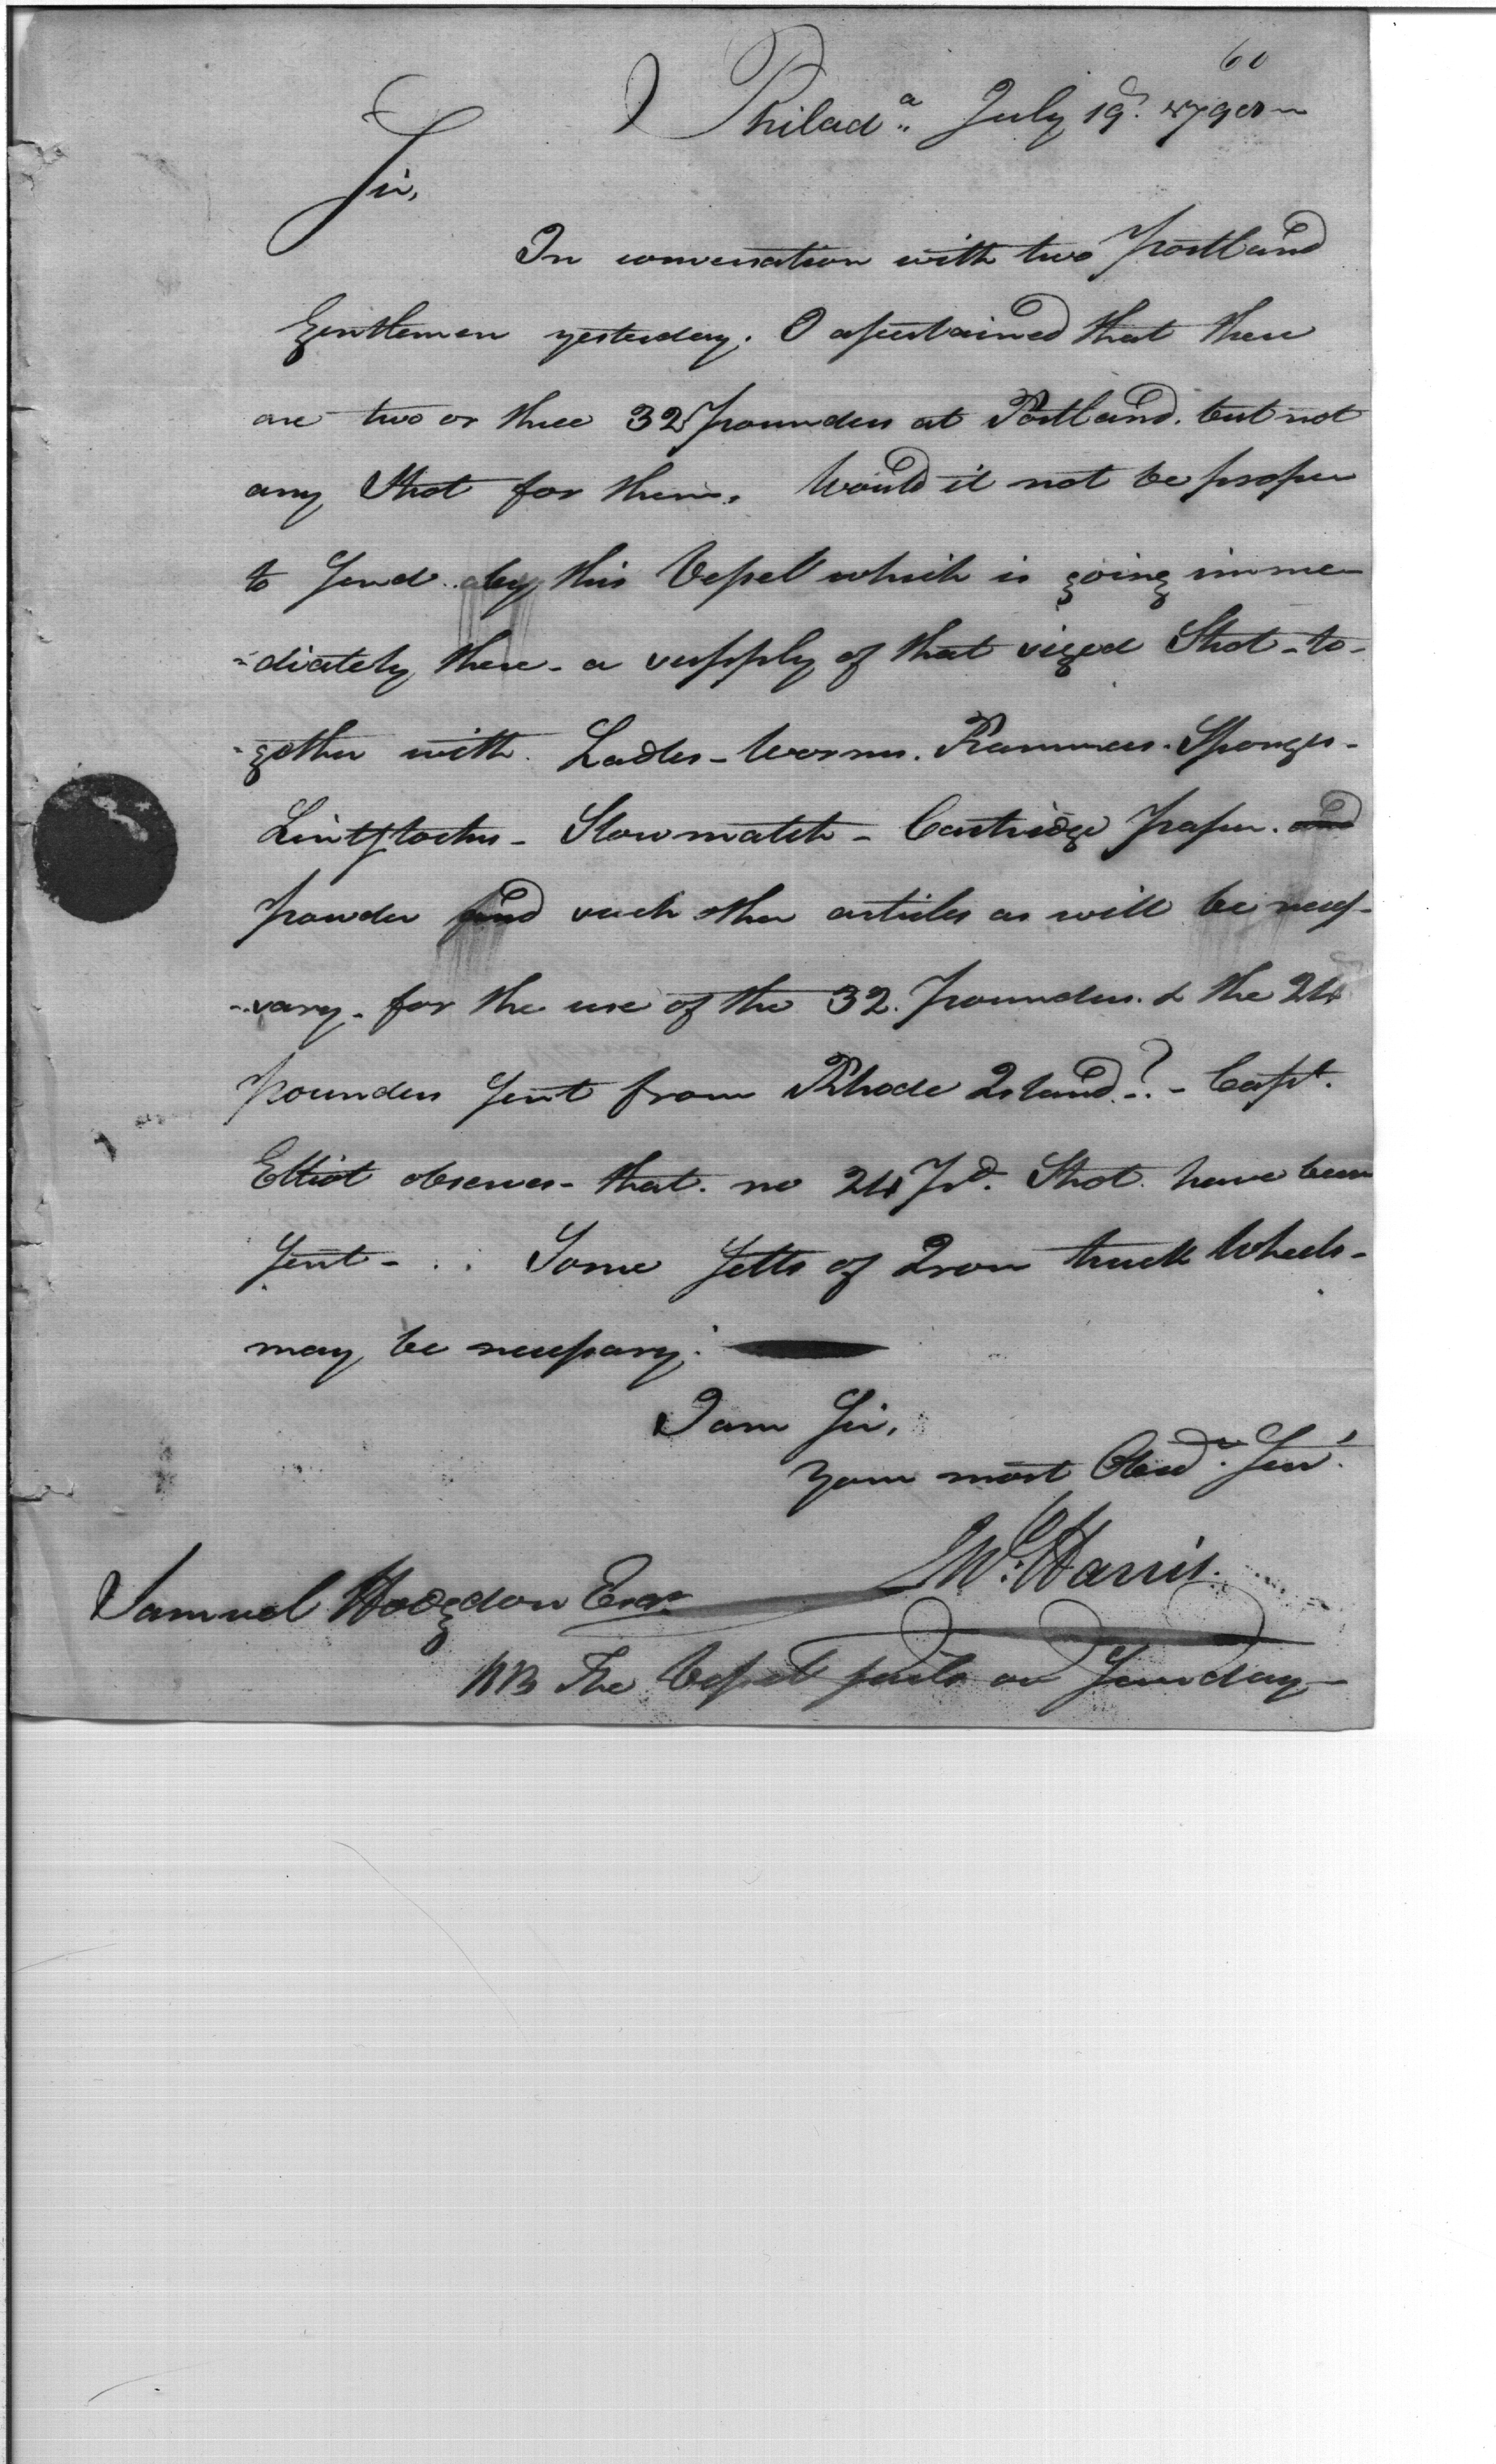 60
Philad.a July 19. 1798
Sir,
In conversation with two Portland
Gentlemen yesterday. I ascertained that there
are two or three 32 pounders at Portland. but not
any Shot for them. Would it not be proper
to Send by this Vessel which is going imme-
-diately there - a supply of that sized Shot - to-
-gether with Ladles - Worms. Rammers. Sponges -
Lintstocks - Slow match - Cartridge paper. and
powder and such other articles as will be neces-
-sary - for the use of the 32. pounders. & the 24
pounders Sent from Rhode Island? - Capt.
Elliot observes - that no 24 Pd. Shot have been
Sent - . . Some Setts of Iron truck Wheels -
may be necessary.
I am Sir,
Your most Obed.t Ser.t
Jno. Harris.
Samuel Hodgdon Esqr
NB The Vessel sails on Sunday -